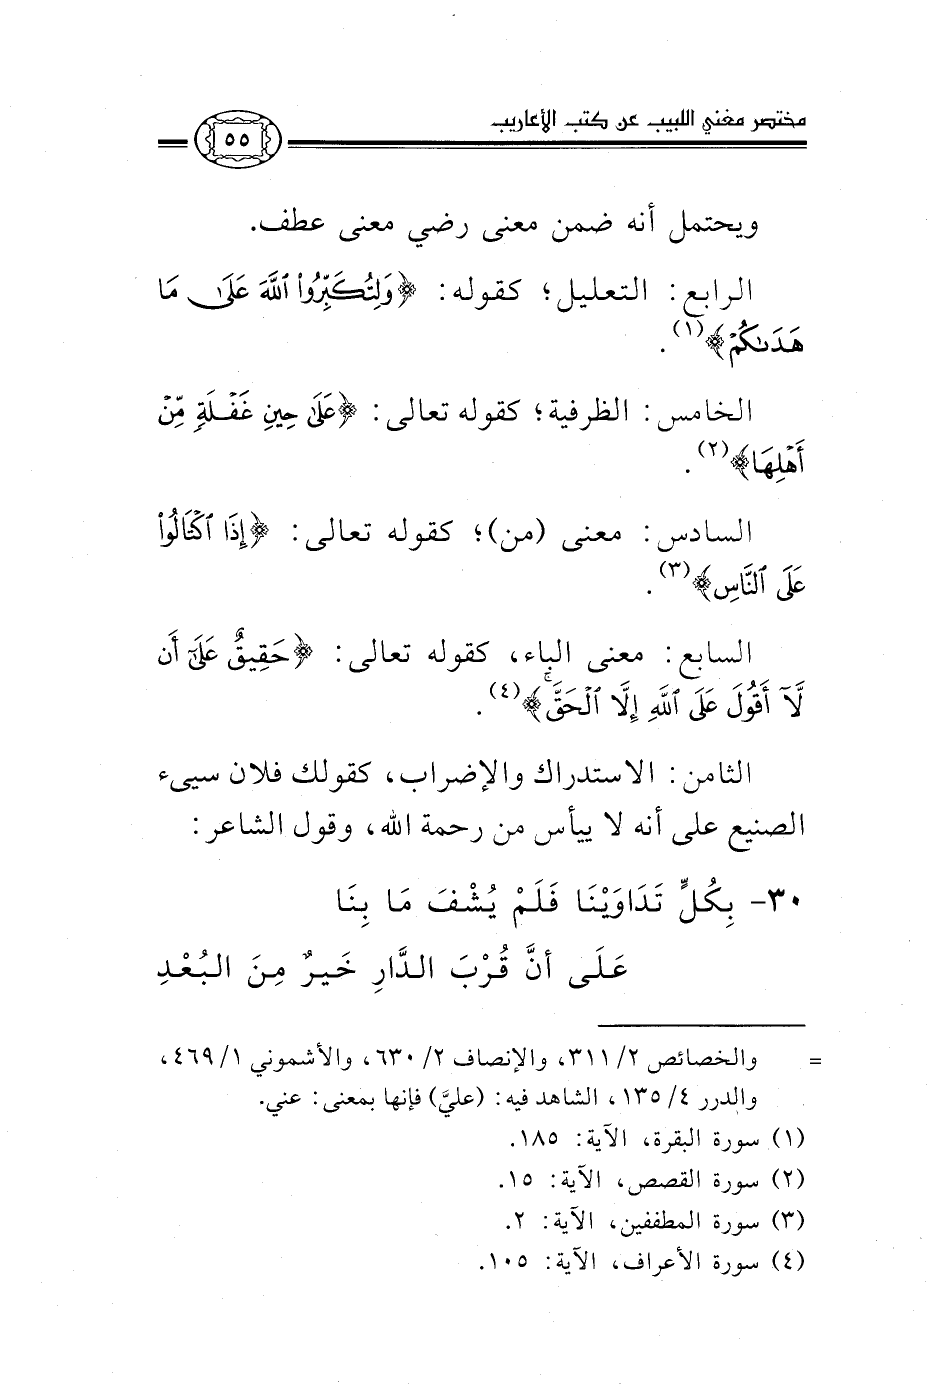 مختصر مغني اللبيب عن كتب الأعاريب
٥٥
ويحتمل أنه ضمن معنى رضي معنى عطف.
الرابع: التعليل؛ كقوله: ﴿وَلِتُكَبِّرُوا۟ ٱللَّهَ عَلَىٰ مَا
هَدَىٰكُمْ﴾(١).
الخامس: الظرفية؛ كقوله تعالى: ﴿عَلَىٰ حِينِ غَفْلَةٍ مِّنْ
أَهْلِهَا﴾(٢).
السادس: معنى (من)؛ كقوله تعالى: ﴿إِذَا ٱكْتَالُوا۟
عَلَى ٱلنَّاسِ﴾(٣).
السابع: معنى الباء، كقوله تعالى: ﴿حَقِيقٌ عَلَىٰٓ أَن
لَّآ أَقُولَ عَلَى ٱللَّهِ إِلَّا ٱلْحَقَّ ۚ﴾(٤).
الثامن: الاستدراك والإضراب، كقولك فلان سيىء
الصنيع على أنه لا ييأس من رحمة الله، وقول الشاعر:
٣٠- بِكُلٍّ تَدَاوَيْنَا فَلَمْ يُشْفَ مَا بِنَا
عَلَى أنَّ قُرْبَ الدَّارِ خَيرٌ مِنَ البُعْدِ
= والخصائص ٢/ ٣١١، والإنصاف ٢/ ٦٣٠، والأشموني ١/ ٤٦٩،
والدرر ٤/ ١٣٥، الشاهد فيه: (عليَّ) فإنها بمعنى: عني.
(١) سورة البقرة، الآية: ١٨٥.
(٢) سورة القصص، الآية: ١٥.
(٣) سورة المطففين، الآية: ٢.
(٤) سورة الأعراف، الآية: ١٠٥.